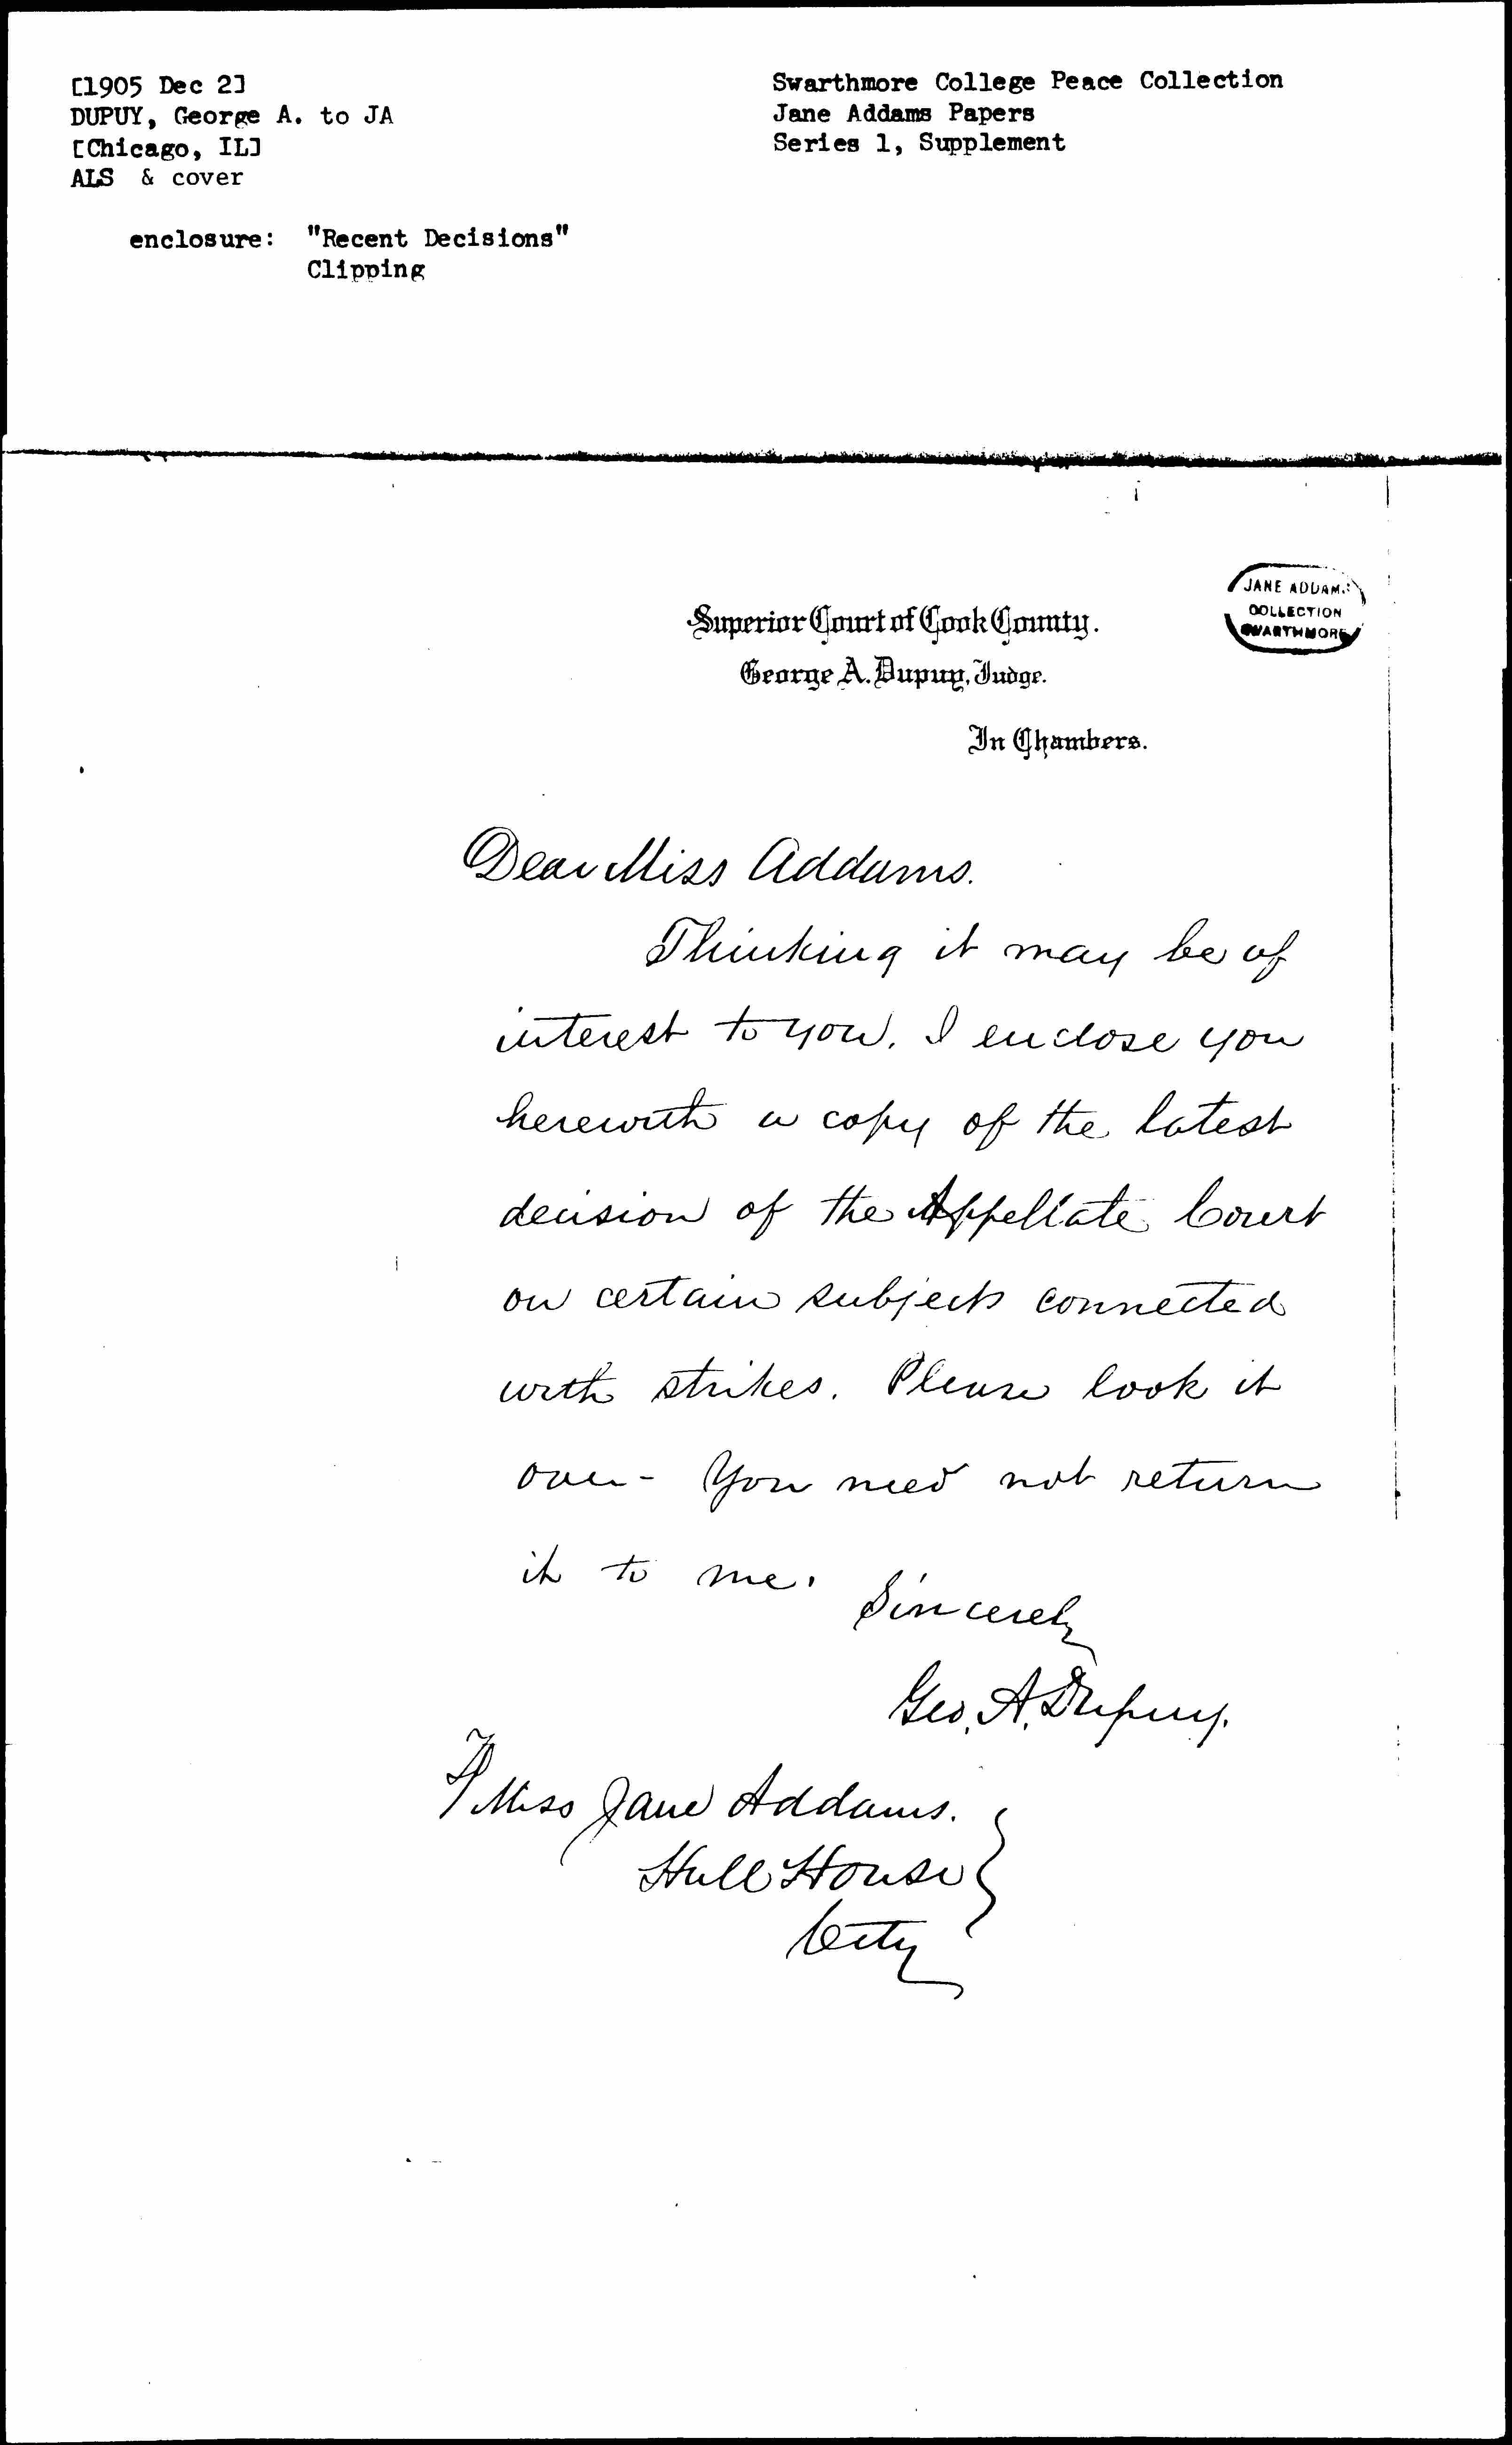 [1905 Dec 2]
DUPUY, George A. to JA
[Chicago, IL]
ALS & cover
enclosure: "Recent Decisions"
Clipping
Swarthmore College Peace Collection
Jane Addams Papers
Series 1, Supplement
JANE ADDAMS
COLLECTION
SWARTHMORE
Superior Court of Cook County.
George A. Dupuy, Judge.
In Chambers.
Dear Miss Addams.
Thinking it may be of
interest to you, I enclose you
herewith a copy of the latest
decision of the Appellate Court
on certain subjects connected
with strikes. Please look it
over - You need not return
it to me.
Sincerely
Geo. A. Dupuy.
Miss Jane Addams.
Hull House
City